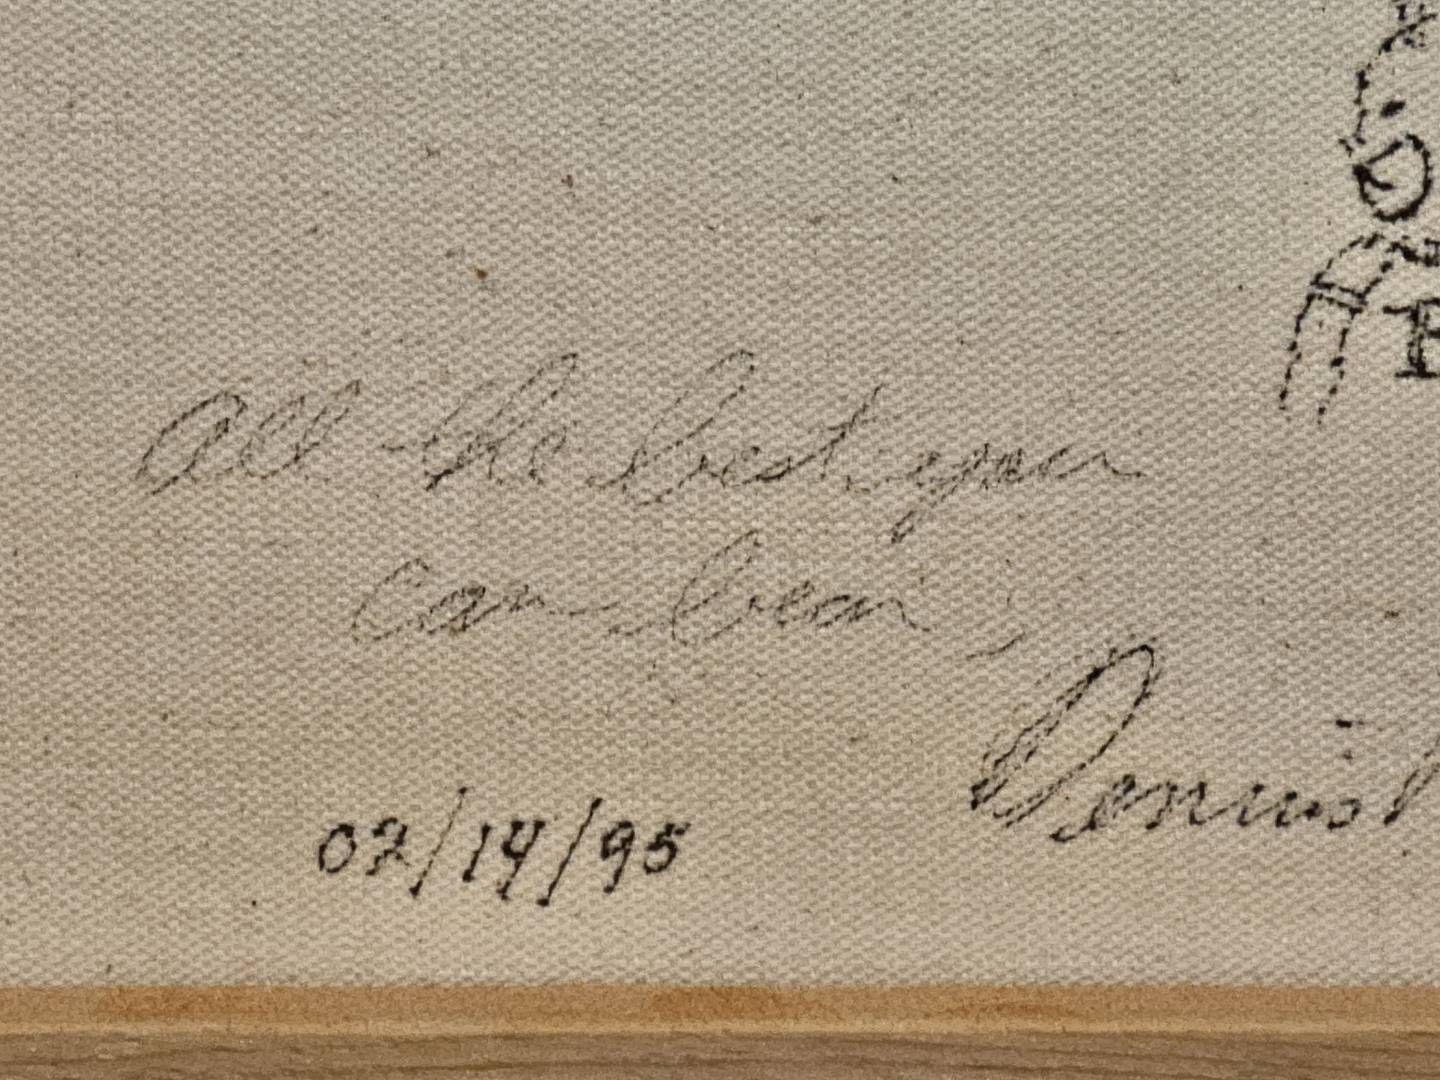 All the best you
can bear,
Dennis
02/14/95